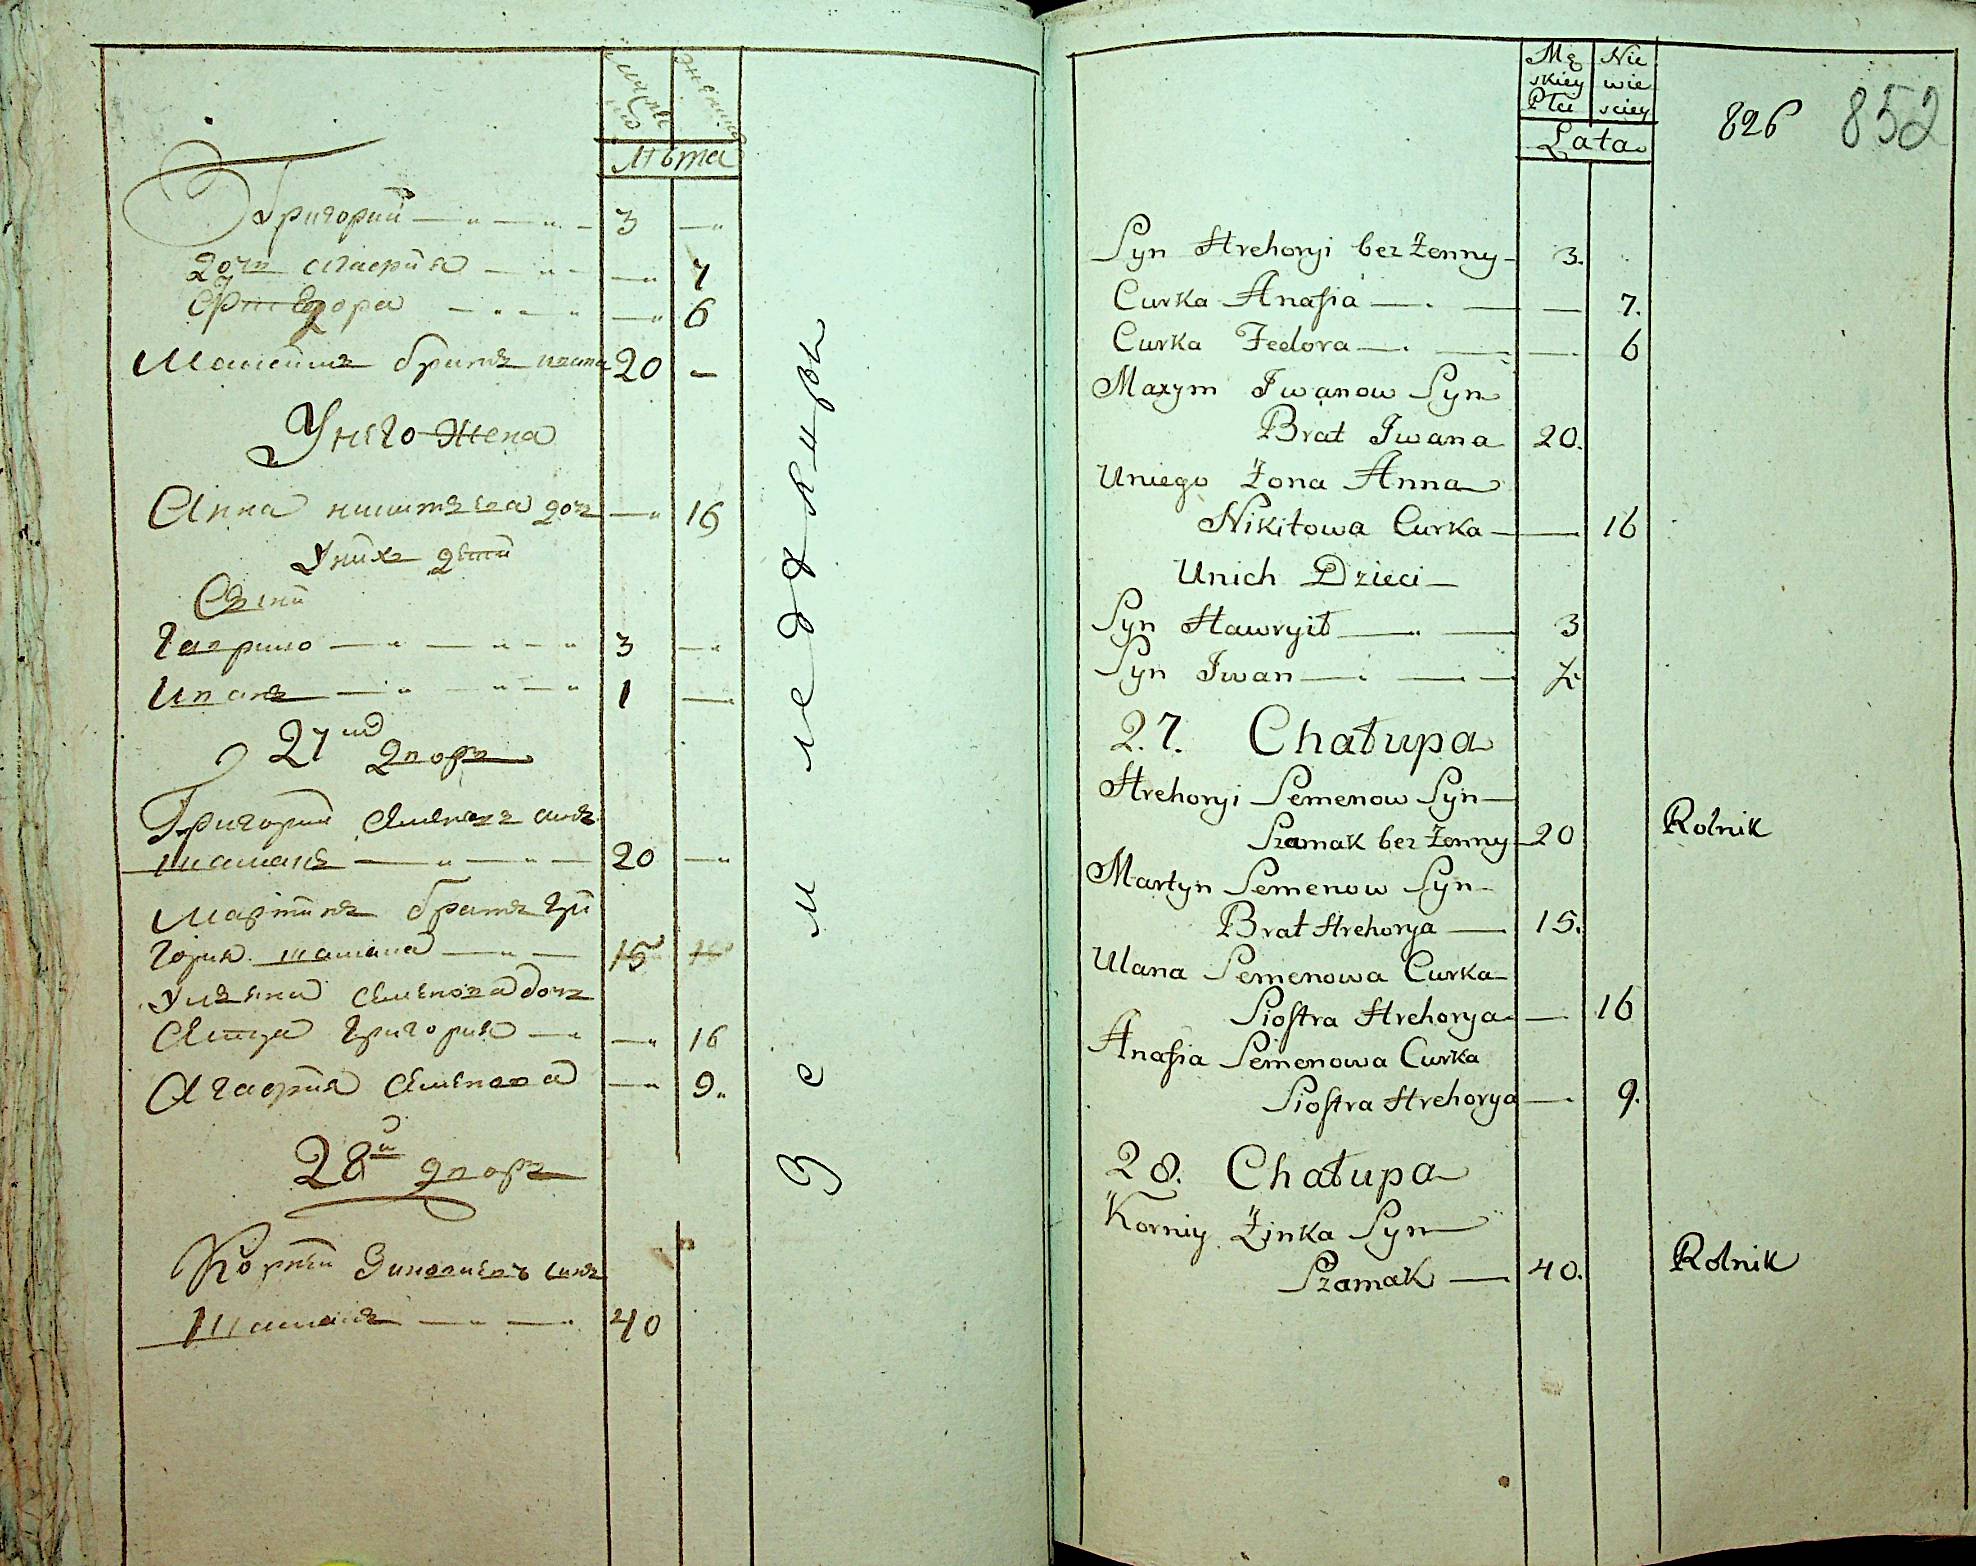 Лѣта
Григорий 3
дочи Агафия 7
Федора 6
Максимъ братъ ивана 20
У него жена
Анна никитъева доч 16
У них дѣти
Сыни
Гаврило 3
Иванъ 1
27й дворъ
Григорий Семеновъ синъ
шаманъ 20
Мартинъ братъ Гри
гория шамана 15
Улянна Семенова дочъ
Сестра Григория 16
Агафия Семенова 9
28й дворъ
Корнѣй Зиновиевъ синъ
Шаманъ 40
земледелцы
Mę Nie
skiey wie
Płci sciey
Lata
826 852
Syn Hrehoryi bez Żonny 3.
Curka Anasia 7.
Curka Fedora 6
Maxym Iwanow Syn
Brat Iwana 20.
Uniego Żona Anna
Nikitowa Curka 16
Unich Dzieci
Syn Hawryił 3
Syn Iwan
27. Chałupa
Hrehoryi Semenow Syn
Szamak bez Żonny 20 Rolnik
Martyn Semenow Syn
Brat Hrehorya 15.
Ulana Semenowa Curka
Siostra Hrehorya 16
Anasia Semenowa Curka
Siostra Hrehorya 9.
28. Chałupa
Korniy Żinka Syn
Szamak 40. Rolnik